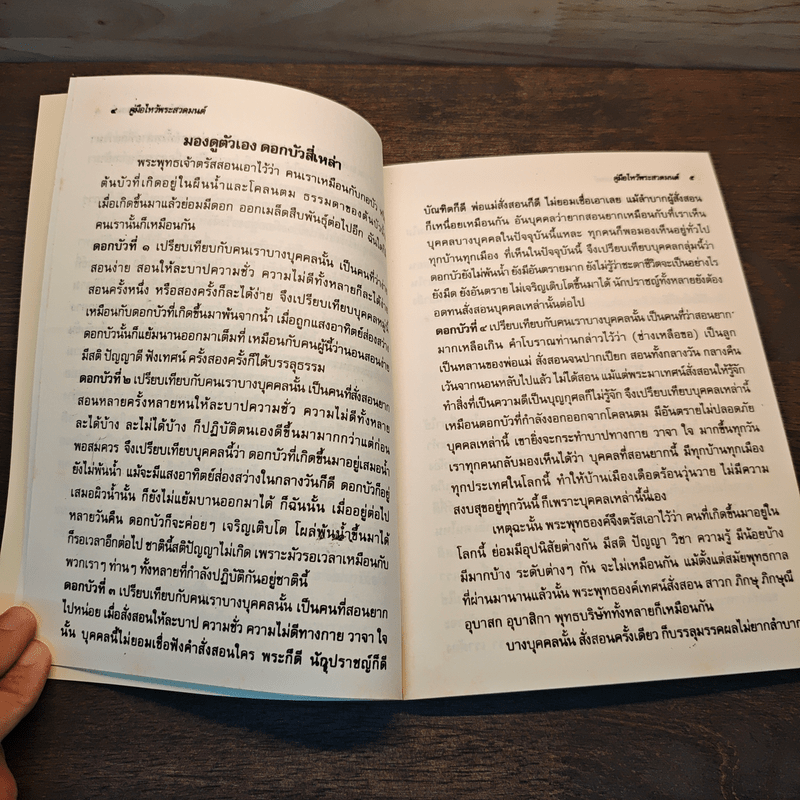 ๔ คู่มือไหว้พระสวดมนต์
มองดูตัวเอง ดอกบัวสี่เหล่า
พระพุทธเจ้าตรัสสอนเอาไว้ว่า คนเราเหมือนกับกอบัว
ต้นบัวที่เกิดอยู่ในผืนน้ำและโคลนตม ธรรมดาของต้นบัวนั้น
เมื่อเกิดขึ้นมาแล้วย่อมมีดอก ออกเมล็ดสืบพันธุ์ต่อไปอีก ฉันใด
คนเรานั้นก็เหมือนกัน
ดอกบัวที่ ๑ เปรียบเทียบกับคนเราบางบุคคลนั้น เป็นคนที่ว่าง่าย
สอนง่าย สอนให้ละบาปความชั่ว ความไม่ดีทั้งหลายก็ละได้ง่าย
สอนครั้งหนึ่ง หรือสองครั้งก็ละได้ง่าย จึงเปรียบเทียบบุคคลหมู่นี้
เหมือนกับดอกบัวที่เกิดขึ้นมาพ้นจากน้ำ เมื่อถูกแสงอาทิตย์ส่องสว่าง
ดอกบัวนั้นก็แย้มบานออกมาเต็มที่ เหมือนกับคนผู้นี้ว่านอนสอนง่าย
มีสติ ปัญญาดี ฟังเทศน์ ครั้งสองครั้งก็ได้บรรลุธรรม
ดอกบัวที่ ๒ เปรียบเทียบกับคนเราบางบุคคลนั้น เป็นคนที่สั่งสอนยาก
สอนหลายครั้งหลายหนให้ละบาปความชั่ว ความไม่ดีทั้งหลาย
ละได้บ้าง ละไม่ได้บ้าง ก็ปฏิบัติตนเองดีขึ้นมามากกว่าแต่ก่อน
พอสมควร จึงเปรียบเทียบบุคคลนี้ว่า ดอกบัวที่เกิดขึ้นมาอยู่เสมอน้ำ
ยังไม่พ้นน้ำ แม้จะมีแสงอาทิตย์ส่องสว่างในกลางวันก็ดี ดอกบัวก็อยู่
เสมอผิวน้ำนั้น ก็ยังไม่แย้มบานออกมาได้ ก็ฉันนั้น เมื่ออยู่ต่อไป
หลายวันคืน ดอกบัวก็จะค่อยๆ เจริญเติบโต โผล่พ้นน้ำขึ้นมาได้
ก็รอเวลาอีกต่อไป ชาตินี้สติปัญญาไม่เกิด เพราะมัวรอเวลาเหมือนกับ
พวกเราๆ ท่านๆ ทั้งหลายที่กำลังปฏิบัติกันอยู่ชาตินี้
ดอกบัวที่ ๓ เปรียบเทียบกับคนเราบางบุคคลนั้น เป็นคนที่สอนยาก
ไปหน่อย เมื่อสั่งสอนให้ละบาป ความชั่ว ความไม่ดีทางกาย วาจา ใจ
นั้น บุคคลนี้ไม่ยอมเชื่อฟังคำสั่งสอนใคร พระก็ดี นักปราชญ์ก็ดี
คู่มือไหว้พระสวดมนต์ ๕
บัณฑิตก็ดี พ่อแม่สั่งสอนก็ดี ไม่ยอมเชื่อเอาเลย แม้ลำบากผู้สั่งสอน
ก็เหนื่อยเหมือนกัน อันบุคคลว่ายากสอนยากเหมือนกับที่เราเห็น
บุคคลบางบุคคลในปัจจุบันนี้แหละ ทุกคนก็พอมองเห็นอยู่ทั่วไป
ทุกบ้านทุกเมือง ที่เห็นในปัจจุบันนี้ จึงเปรียบเทียบบุคคลกลุ่มนี้ว่า
ดอกบัวยังไม่พ้นน้ำ ยังมีอันตรายมาก ยังไม่รู้ว่าชะตาชีวิตจะเป็นอย่างไร
ยังมืด ยังอันตราย ไม่เจริญเติบโตขึ้นมาได้ นักปราชญ์ทั้งหลายยังต้อง
อดทนสั่งสอนบุคคลเหล่านั้นต่อไป
ดอกบัวที่ ๔ เปรียบเทียบกับคนเราบางบุคคลนั้น เป็นคนที่ว่าสอนยาก
มากเหลือเกิน คำโบราณท่านกล่าวไว้ว่า (ช่างเหลือขอ) เป็นลูก
เป็นหลานของพ่อแม่ สั่งสอนจนปากเปียก สอนทั้งกลางวัน กลางคืน
เว้นจากนอนหลับไปแล้ว ไม่ได้สอน แม้แต่พระมาเทศน์สั่งสอนให้รู้จัก
ทำสิ่งที่เป็นความดีเป็นบุญกุศลก็ไม่รู้จัก จึงเปรียบเทียบบุคคลเหล่านี้
เหมือนดอกบัวที่กำลังงอกออกจากโคลนตม มีอันตรายไม่ปลอดภัย
บุคคลเหล่านี้ เขายิ่งจะกระทำบาปทางกาย วาจา ใจ มากขึ้นทุกวัน
เราทุกคนกลับมองเห็นได้ว่า บุคคลที่สอนยากนี้ มีทุกบ้านทุกเมือง
ทุกประเทศในโลกนี้ ทำให้บ้านเมืองเดือดร้อนวุ่นวาย ไม่มีความ
สงบสุขอยู่ทุกวันนี้ ก็เพราะบุคคลเหล่านี้นี่เอง
เหตุฉะนั้น พระพุทธองค์จึงตรัสเอาไว้ว่า คนที่เกิดขึ้นมาอยู่ใน
โลกนี้ ย่อมมีอุปนิสัยต่างกัน มีสติ ปัญญา วิชา ความรู้ มีน้อยบ้าง
มีมากบ้าง ระดับต่างๆ กัน จะไม่เหมือนกัน แม้ตั้งแต่สมัยพุทธกาล
ที่ผ่านมานานแล้วนั้น พระพุทธองค์เทศน์สั่งสอน สาวก ภิกษุ ภิกษุณี
อุบาสก อุบาสิกา พุทธบริษัททั้งหลายก็เหมือนกัน
บางบุคคลนั้น สั่งสอนครั้งเดียว ก็บรรลุมรรคผลไม่ยากลำบาก